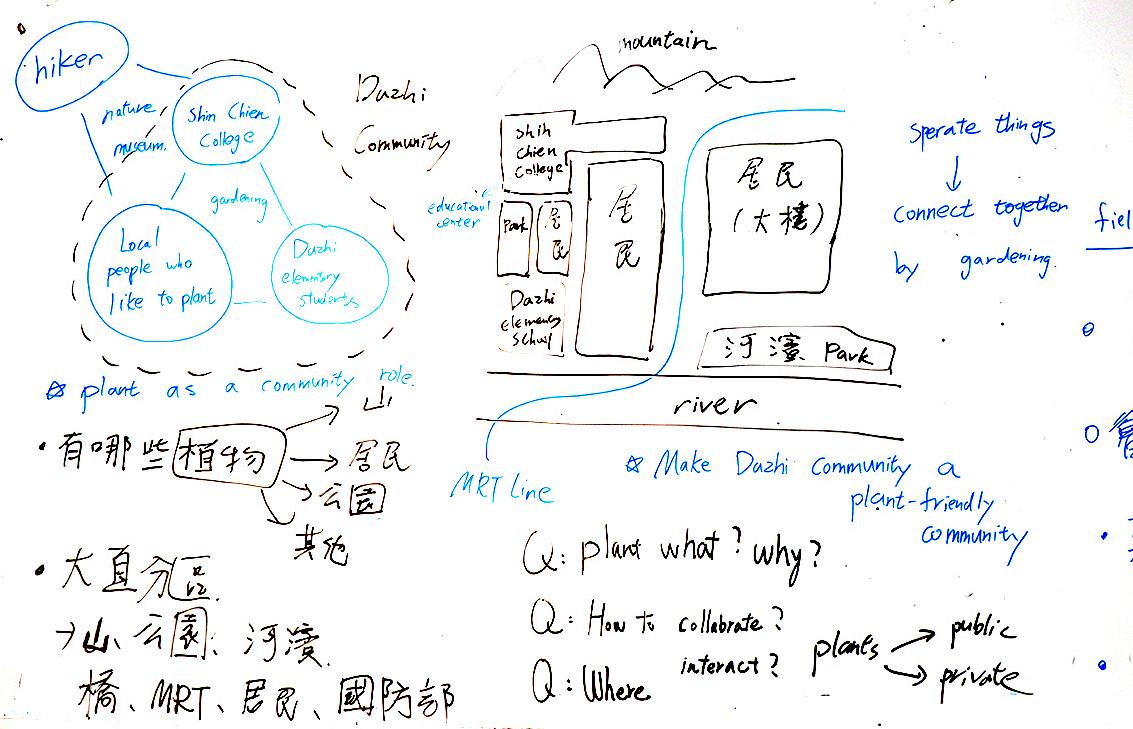 hiker
nature
museum.
Shin Chien
College
gardening
Local
people who
like to plant
Dazhi
elementary
students
Dazhi
Community
☆ plant as a community role.
• 有哪些植物
山
居民
公園
其他
• 大直分區
→山、公園、河濱
橋、MRT、居民、國防部
mountain
Shih
Chien
College
educational
center
Park
居
民
居
民
Dazhi
elementary
School
居民
(大樓)
河濱 Park
river
MRT Line
sperate things
↓
connect together
by gardening.
☆ Make Dazhi Community a
plant-friendly
community
Q: plant what? why?
Q: How to collabrate?
interact?
Q: Where
plants
public
private
fiel